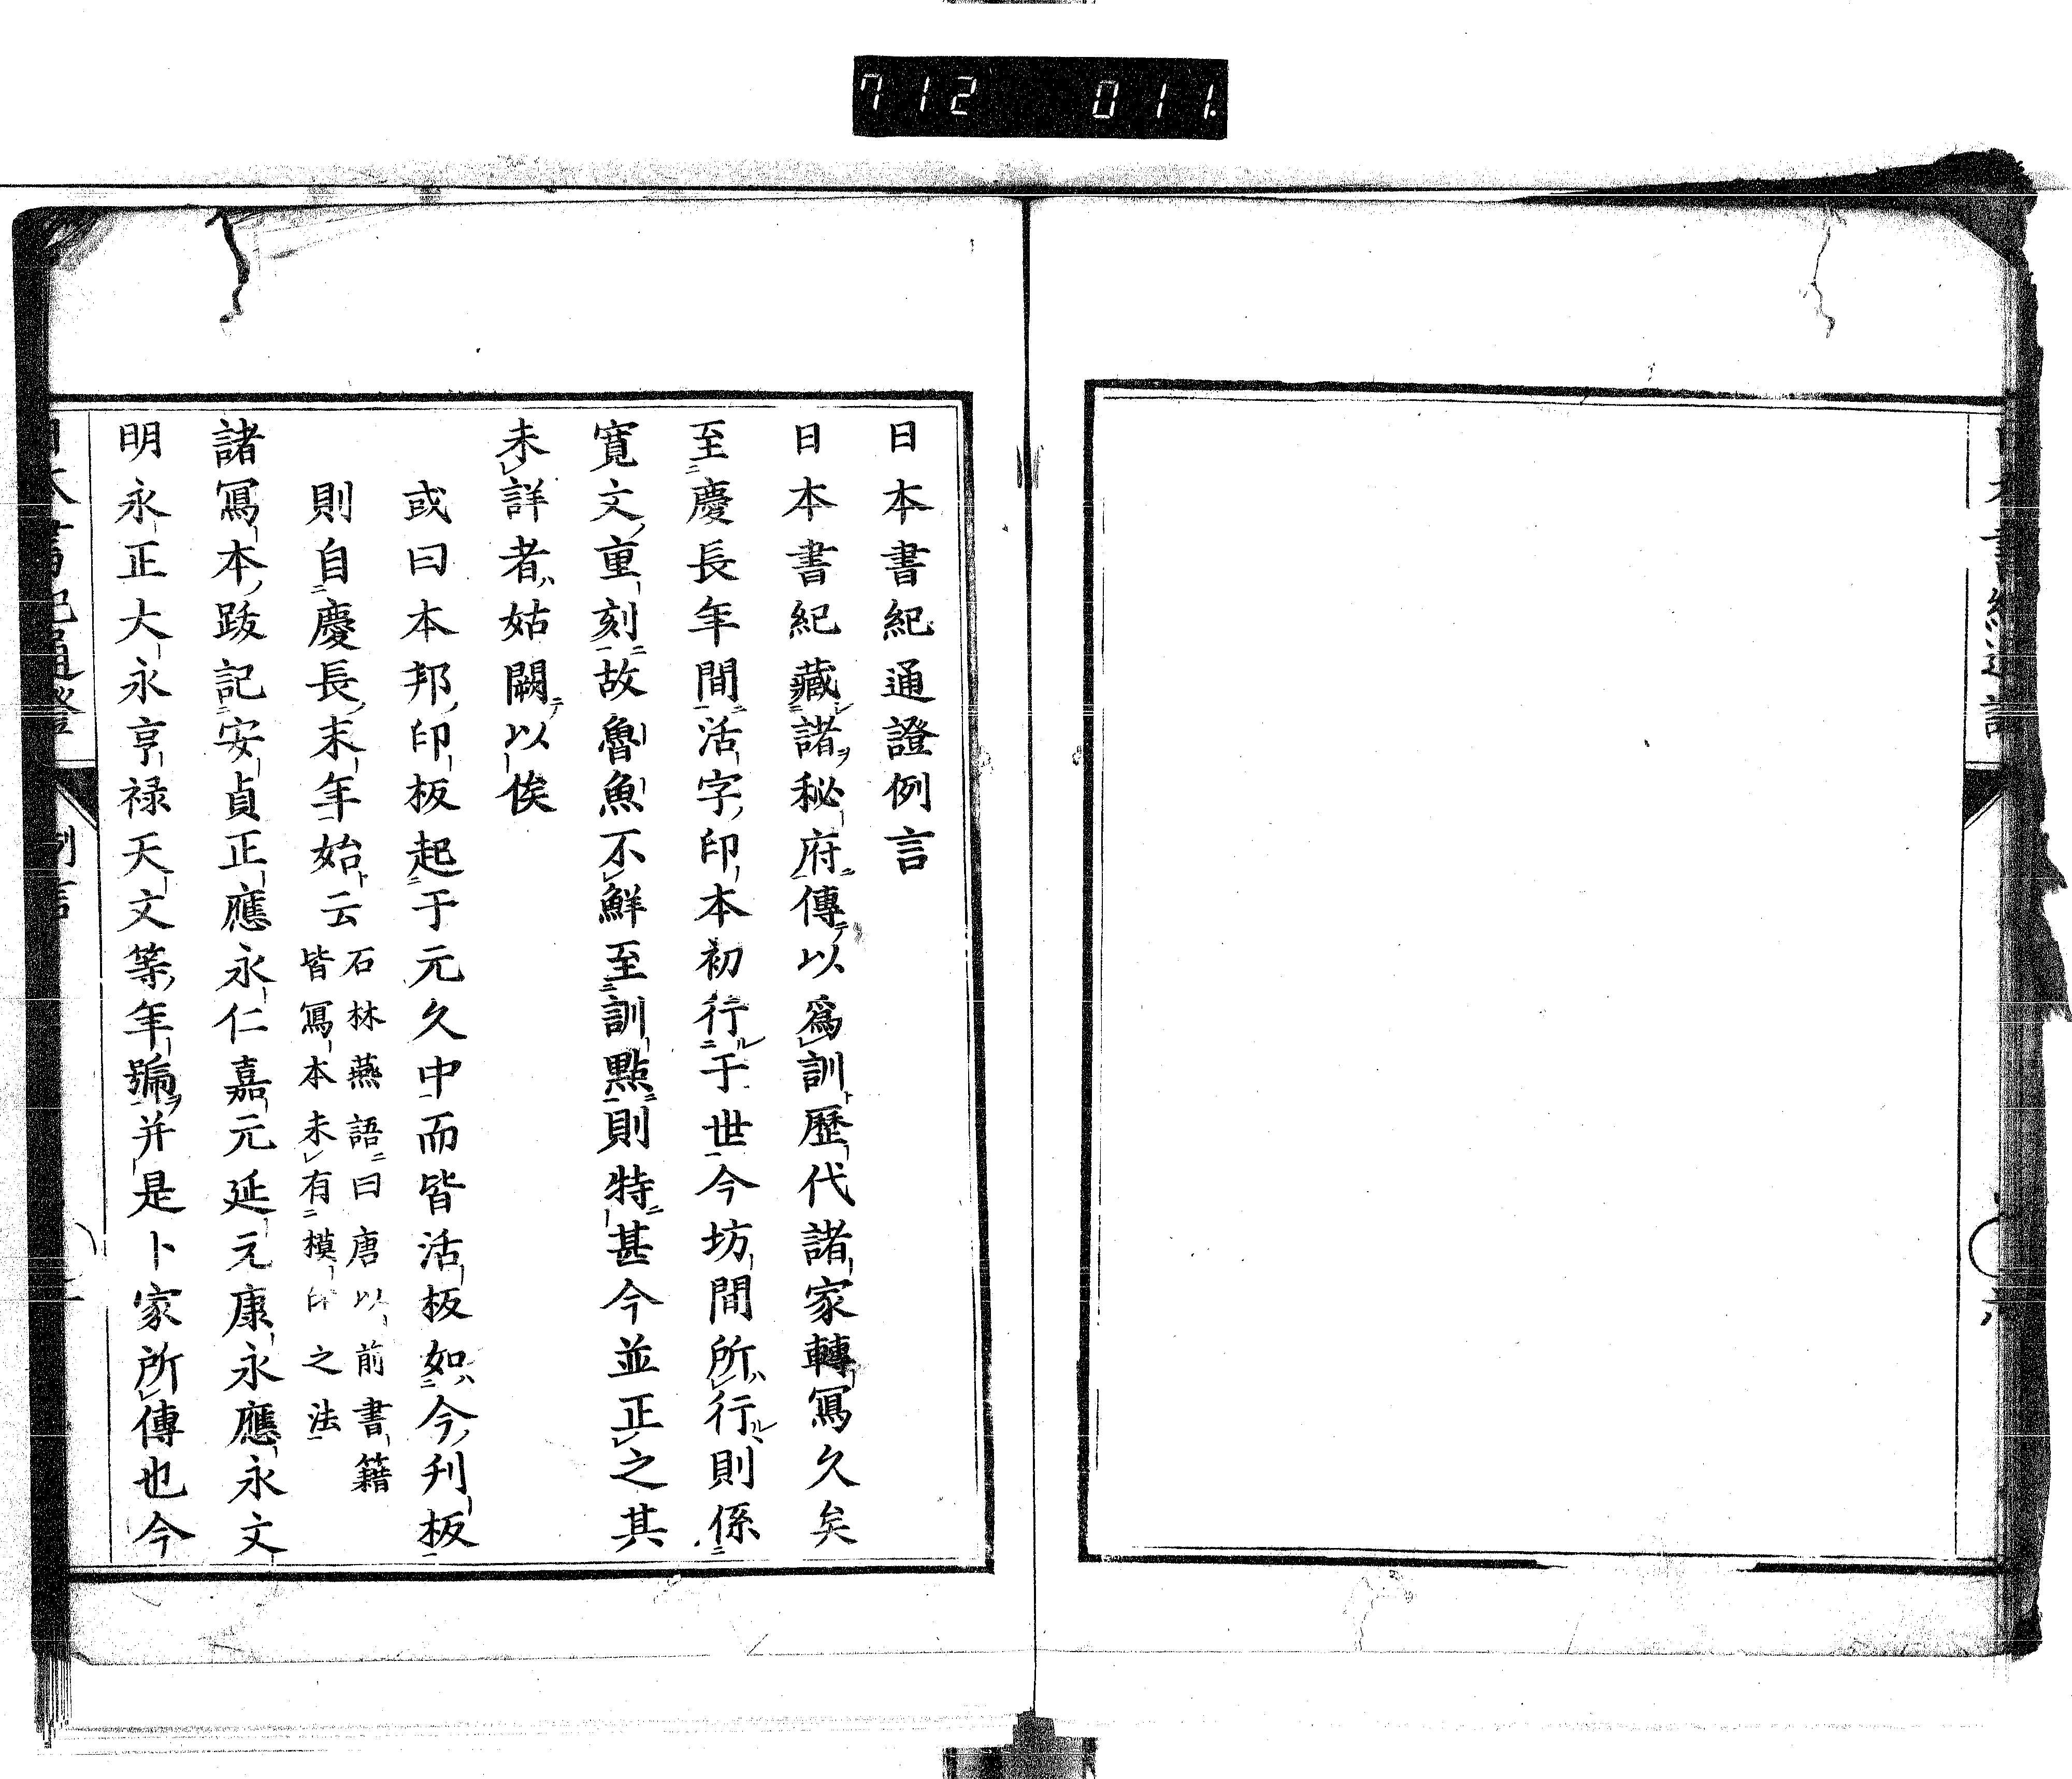 712 011.
日本書紀通證例言
日本書紀藏諸秘府傳以爲訓歷代諸家轉冩久矣
至慶長年間活字印本初行于世今坊間所行則係
寛文重刻故魯魚不鮮至訓點則特甚今並正之其
未詳者姑闕以俟
或曰本邦印板起于元久中而皆活板如今刋板
則自慶長末年始云
石林燕語曰唐以前書籍
皆冩本未有模印之法
諸冩本跋記安貞正應永仁嘉元延元康永應永文
明永正大永亨禄天文等年號并是卜家所傳也今